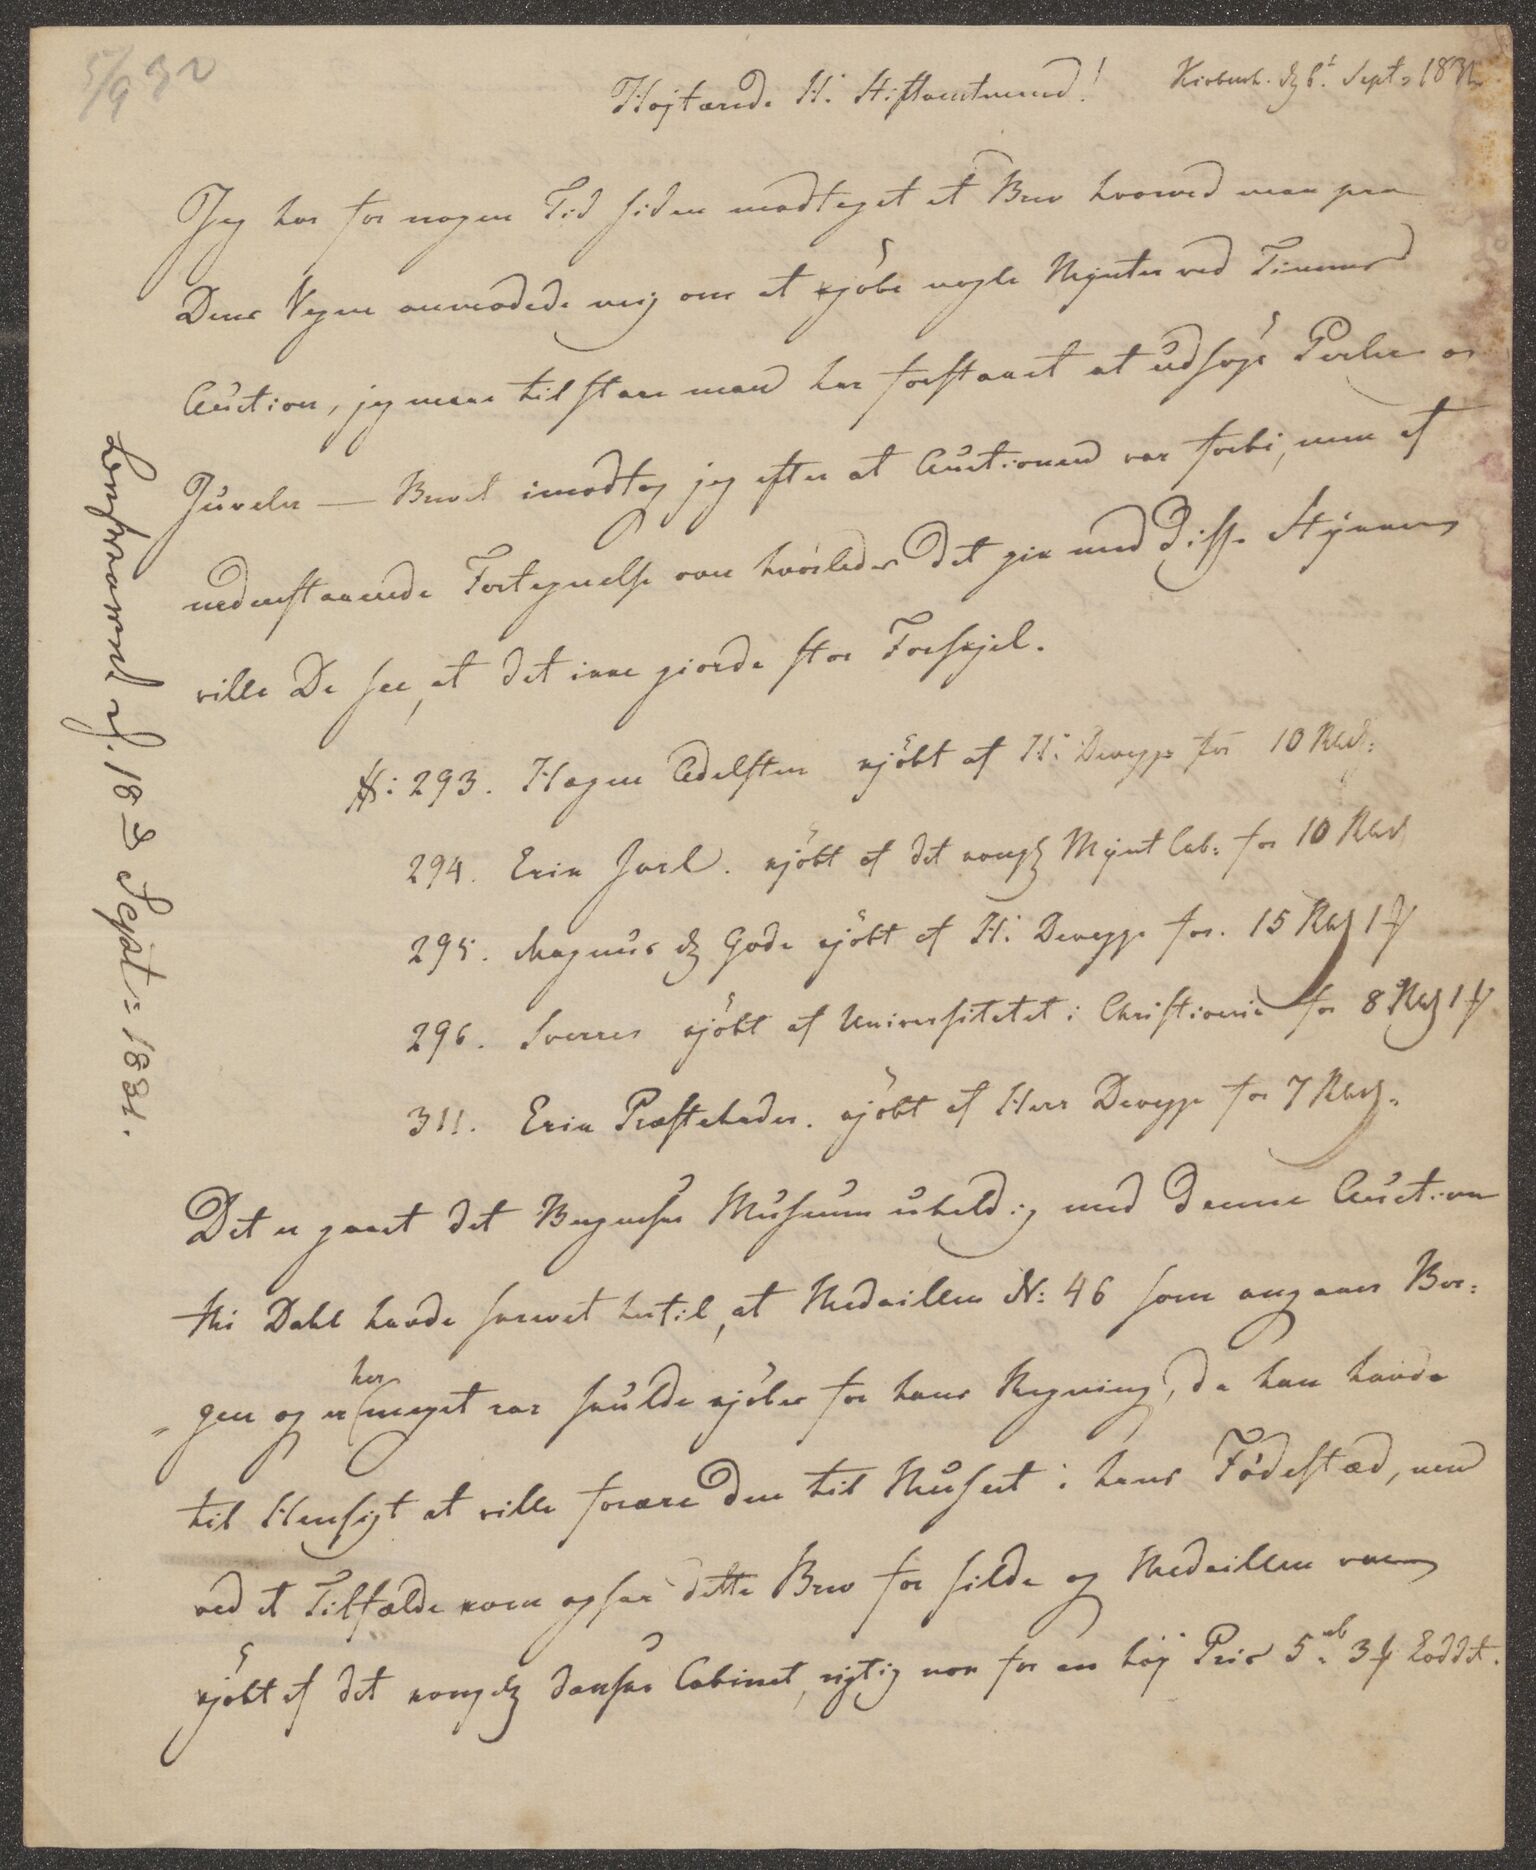 5/9 32
Højtærede H: Stiftamtmand!
Kiøbenh. d: 6t Sept. 1831
Jeg har for nogen Tid siden modtaget et Brev hvorved man paa
Deres Vegne anmodede mig om at kjöbe nogle Mynter ved Timms
Auction, jeg maae tilstaae man har forstaaet at udsöge Perler og
Juveler — Brevet imodtog jeg efter at Auctionen var forbi, men af
nedenstaaende Fortegnelse over hvorledes det gik med disse Stykker
ville De see, at det ikke giorde stor Forskjel.
N: 293. Hagen Adelsten kjöbt af H: Devegge for 10 Rbd:
294. Erik Jarl. kjöbt af det kongl Mynt Cab: for 10 Rbd
295. Magnus d. Gode kjöbt af H: Devegge for. 15 Rbd 1 ſ
296. Sverres kjöbt af Universitetet i Christiania for 8 Rbd 1 ſ
311. Erik Præstehader. kjöbt af Herr Devegge for 7 Rbd.
Det er gaaet det Bergenske Museum uheldig med denne Auction
thi Dahl havde skrevet hertil, at Medaillen N: 46 som angaaer Ber=
=gen og er her meget rar skulde kjöbes for hans Regning, da han havde
til Hensigt at ville forære den til Museet i hans Födestæd, men
ved et Tilfælde kom ogsaa dette Brev for silde og Medaillen var
kjöbt af det kongel danske Cabinet, rigtig nok for en höj Priis 5 mk 3 ſ Loddet.
Besvaret d. 18de Sept: 1831.